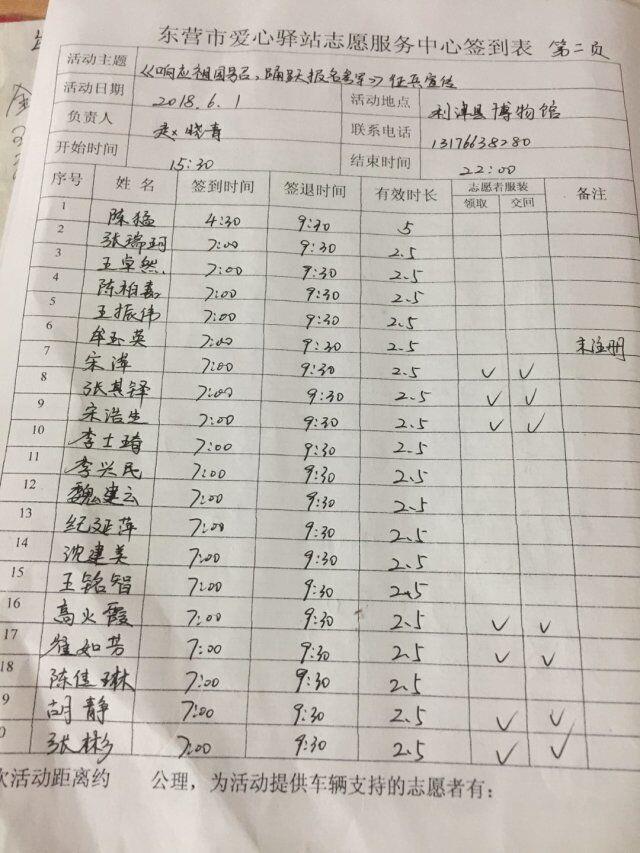 东营市爱心驿站志愿服务中心签到表 第二页
活动主题 《响应祖国号召,踊跃报名参军》征兵宣传
活动日期 2018.6.1 活动地点 利津县博物馆
负责人 赵晓青 联系电话 13176638280
开始时间 15:30 结束时间 22:00
序号 姓名 签到时间 签退时间 有效时长 志愿者服装 备注
领取 交回
1 陈猛 4:30 9:30 5
2 张瑞珂 7:00 9:30 2.5
3 王卓然 7:00 9:30 2.5
4 陈相嘉 7:00 9:30 2.5
5 王振伟 7:00 9:30 2.5
6 牟玉英 7:00 9:30 2.5 未注册
7 宋泽 7:00 9:30 2.5 ✓ ✓
8 张其铎 7:00 9:30 2.5 ✓ ✓
9 宋浩生 7:00 9:30 2.5 ✓ ✓
10 李士琦 7:00 9:30 2.5
11 李兴民 7:00 9:30 2.5
12 魏建云 7:00 9:30 2.5
13 纪延萍 7:00 9:30 2.5
14 沈建美 7:00 9:30 2.5
15 王铭智 7:00 9:30 2.5
16 高火霞 7:00 9:30 2.5 ✓ ✓
17 崔如芳 7:00 9:30 2.5 ✓ ✓
18 陈佳琳 7:00 9:30 2.5
9 胡静 7:00 9:30 2.5 ✓ ✓
0 张彬 7:00 9:30 2.5 ✓ ✓
次活动距离约 公理,为活动提供车辆支持的志愿者有: